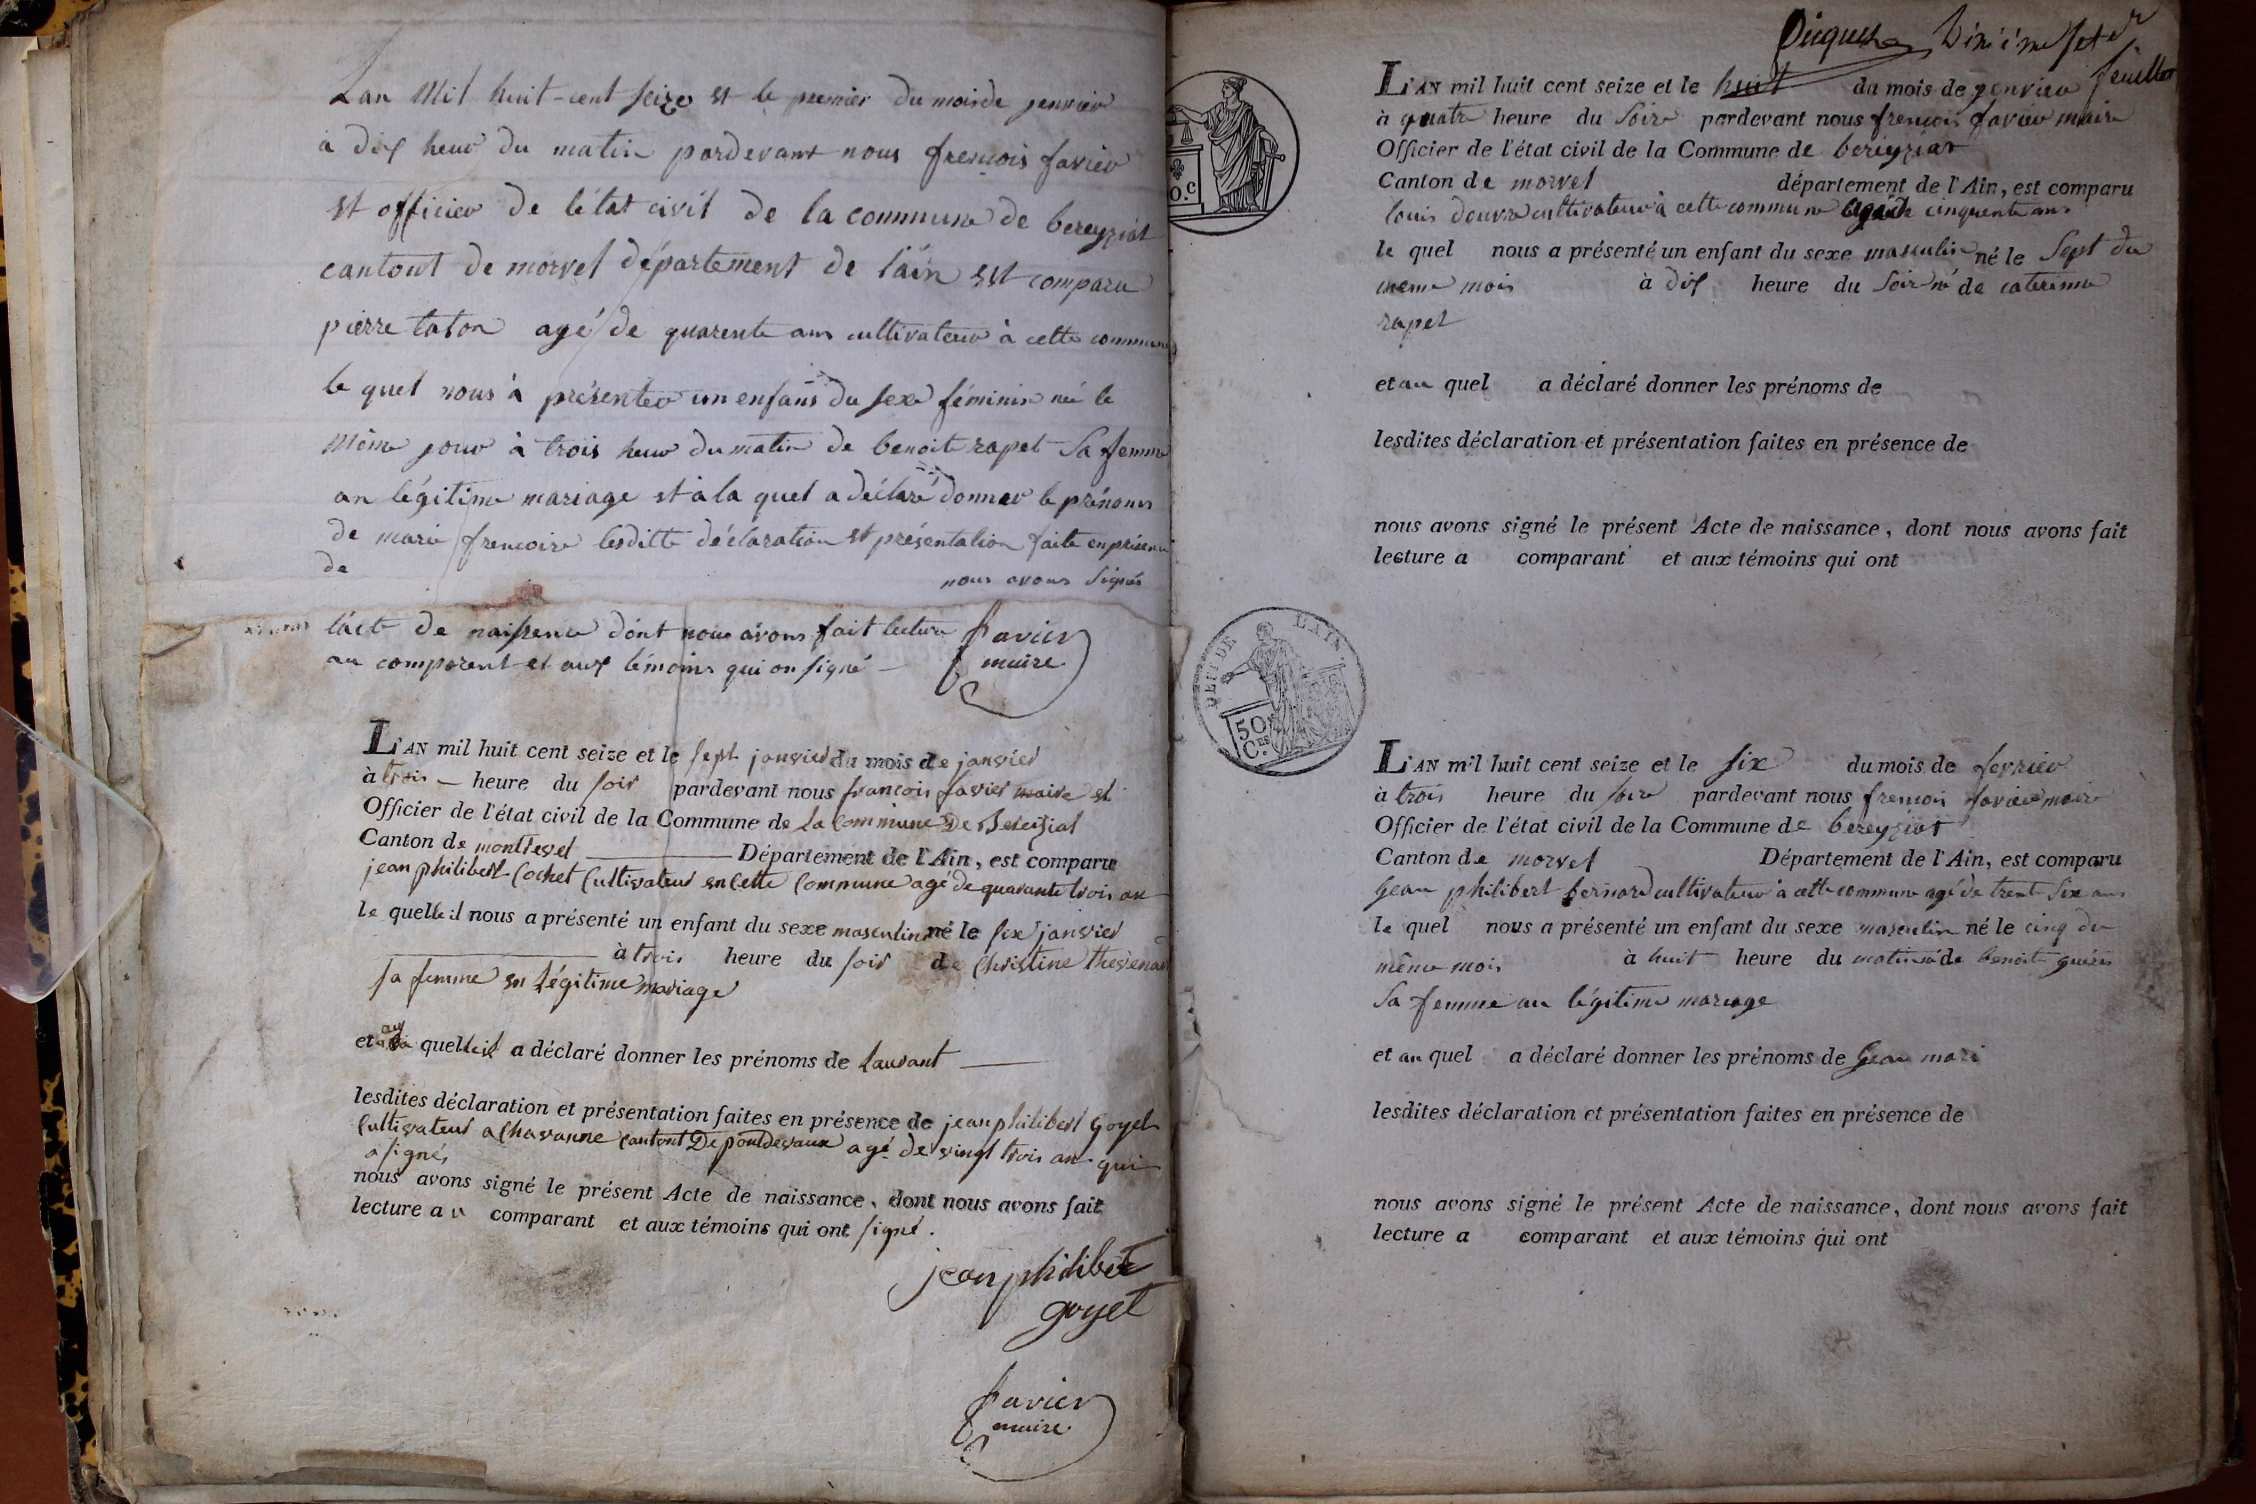 Lan Mil huit-cent seize et le premier du mois de jenvier
à dix heur du matin pardevant nous frencois favier
et officier de létat civil de la commune de bereyziat
cantont de morvel département de l'ain est comparu
pierre taton agé de quarente ans cultivateur à cette commune
le quel nous à présenter un enfans du sexe féminin née le
même jour à trois heur du matin de benoite rapet sa femme
an légitime mariage et à la quel a déclaré donner le prénoms
de marie frencoise lesditte déclaration et présentation faite en présence
de
nous avons signés
l'acte de naissence dont nous avons fait lecture
au comparent et aux témoins qui on signé
favier
maire
L'AN mil huit cent seize et le sept janvier du mois de janvier
à trois heure du soir pardevant nous francois favier maire et
Officier de l'état civil de la Commune de la Commune De Bereiziat
Canton de montrevel Département de l'Ain, est comparu
jean philibert Cochet Cultivateur en Cette Commune agé de quarante trois an
le quelle il nous a présenté un enfant du sexe masculin né le six janvier
à trois heure du soir de Christine thevenard
sa femme en légitime mariage
et au quelle il a déclaré donner les prénoms de Laurant
lesdites déclaration et présentation faites en présence de jean philibert Goyet
Cultivateur a Chavanne Cantont De pondevaux agé de vingt trois an qui
a signé
nous avons signé le présent Acte de naissance, dont nous avons fait
lecture au comparant et aux témoins qui ont signé.
jean philibert
goyet
favier
maire
feuillet
L'AN mil huit cent seize et le huit du mois de jenvier
à quatre heure du soire pardevant nous frencois favier maire
Officier de l'état civil de la Commune de bereyziat
Canton de morvel département de l'Ain, est comparu
louis douvre cultivateur à cette commune agé de cinquente ans
le quel nous a présenté un enfant du sexe masculin né le sept du
meme mois à dix heure du soir né de caterinne
rapet
et au quel a déclaré donner les prénoms de
lesdites déclaration et présentation faites en présence de
nous avons signé le présent Acte de naissance, dont nous avons fait
lecture a comparant et aux témoins qui ont
DEPT DE L'AIN.
50
CES
L'AN mil huit cent seize et le six du mois de fevrier
à trois heure du soire pardevant nous frencois favier maire
Officier de l'état civil de la Commune de bereyziat
Canton de morvel Département de l'Ain, est comparu
Gean philibert bernard cultivateur à cette commune agé de trent six ans
le quel nous a présenté un enfant du sexe masculin né le cinq du
même mois à huit heure du matin né de benoite guérin
Sa femme an légitime mariage
et au quel a déclaré donner les prénoms de Gean mari
lesdites déclaration et présentation faites en présence de
nous avons signé le présent Acte de naissance, dont nous avons fait
lecture a comparant et aux témoins qui ont